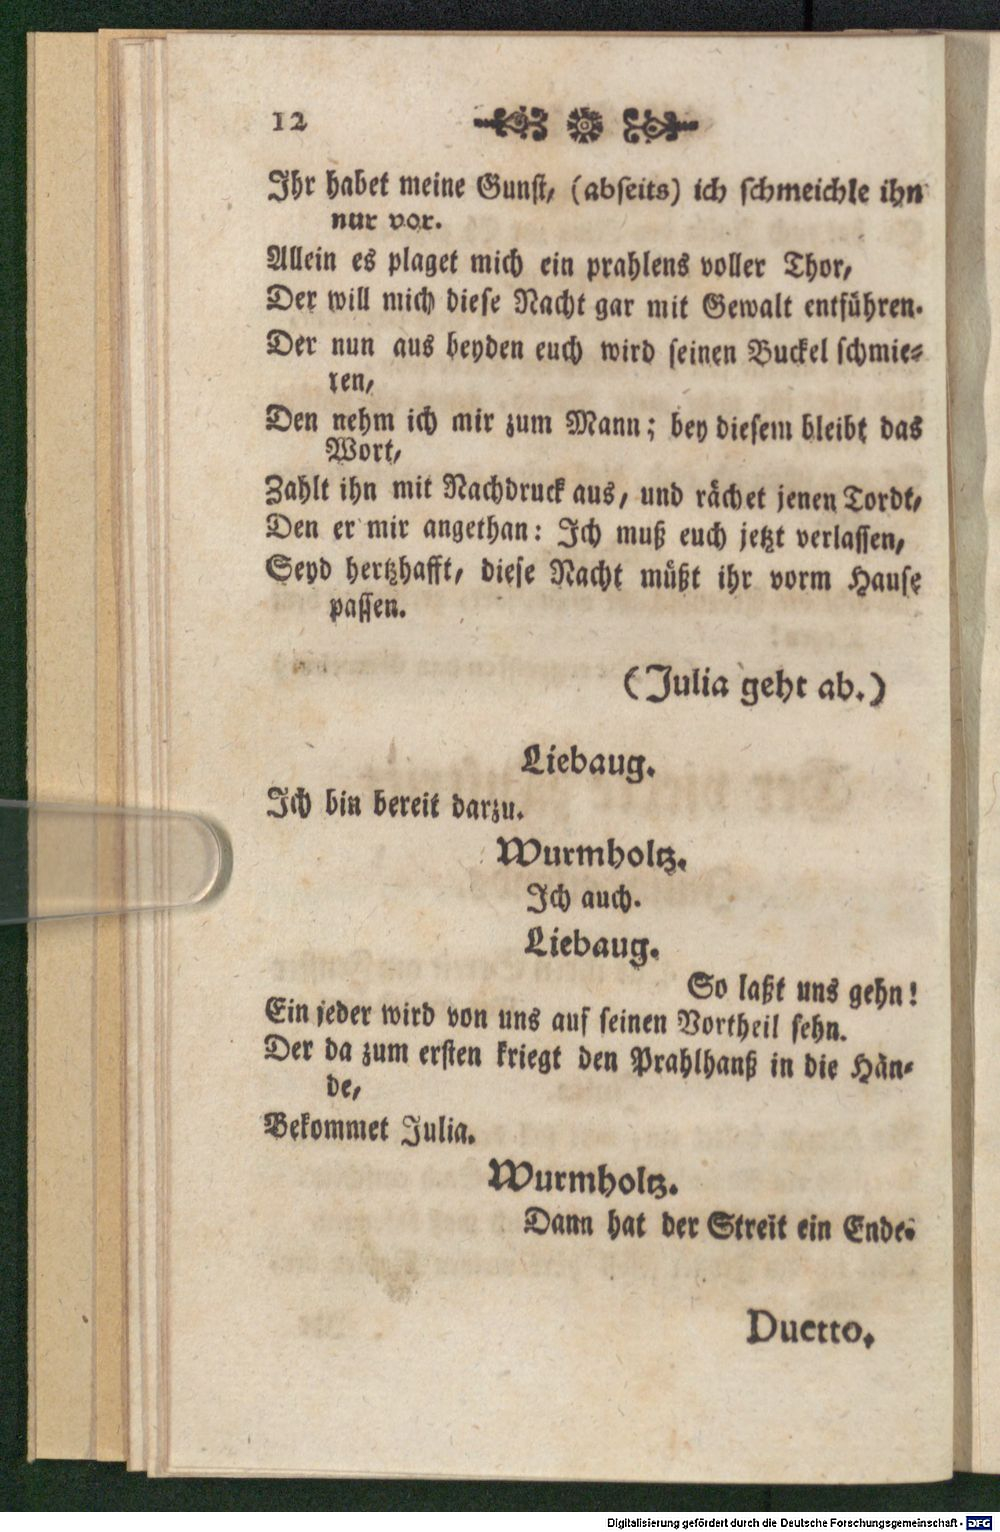 12
Ihr habet meine Gunst, (abseits) ich schmeichle ihn
nur vor.
Allein es plaget mich ein prahlens voller Thor,
Der will mich diese Nacht gar mit Gewalt entführen.
Der nun aus beyden euch wird seinen Buckel schmie⸗
ren,
Den nehm ich mir zum Mann; bey diesem bleibt das
Wort,
Zahlt ihn mit Nachdruck aus, und rächet jenen Tordt,
Den er mir angethan: Ich muß euch jetzt verlassen,
Seyd hertzhafft, diese Nacht müßt ihr vorm Hause
passen.
(Julia geht ab.)
Liebaug.
Ich bin bereit darzu.
Wurmholtz.
Ich auch.
Liebaug.
So laßt uns gehn!
Ein jeder wird von uns auf seinen Vortheil sehn.
Der da zum ersten kriegt den Prahlhanß in die Hän⸗
de,
Bekommet Julia.
Wurmholtz.
Dann hat der Streit ein Ende.
Duetto.
Digitalisierung gefördert durch die Deutsche Forschungsgemeinschaft - DFG